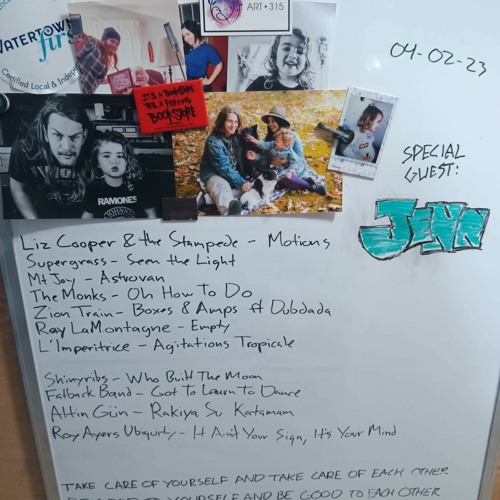 WATERTOWN
first
Certified Local & Indepe
ART•315
IT'S A BOOKSTORE
BOOKSTORE
RAMONES
04-02-23
SPECIAL
GUEST:
JENN
Liz Cooper & the Stampede - Motions
Supergrass - Seen the Light
Mt Joy - Astrovan
The Monks - Oh How To Do
Zion Train - Boxes & Amps ft Dubdada
Ray LaMontagne - Empty
L'Imperitrice - Agitations Tropicale
Shinyribs - Who Built The Moon
Fatback Band - Got To Learn To Dance
Altin Gün - Rakiya Su Katamam
Roy Ayers Ubiquity - It Ain't Your Sign, It's Your Mind
TAKE CARE OF YOURSELF AND TAKE CARE OF EACH OTHER
BE GOOD TO YOURSELF AND BE GOOD TO EACH OTHER